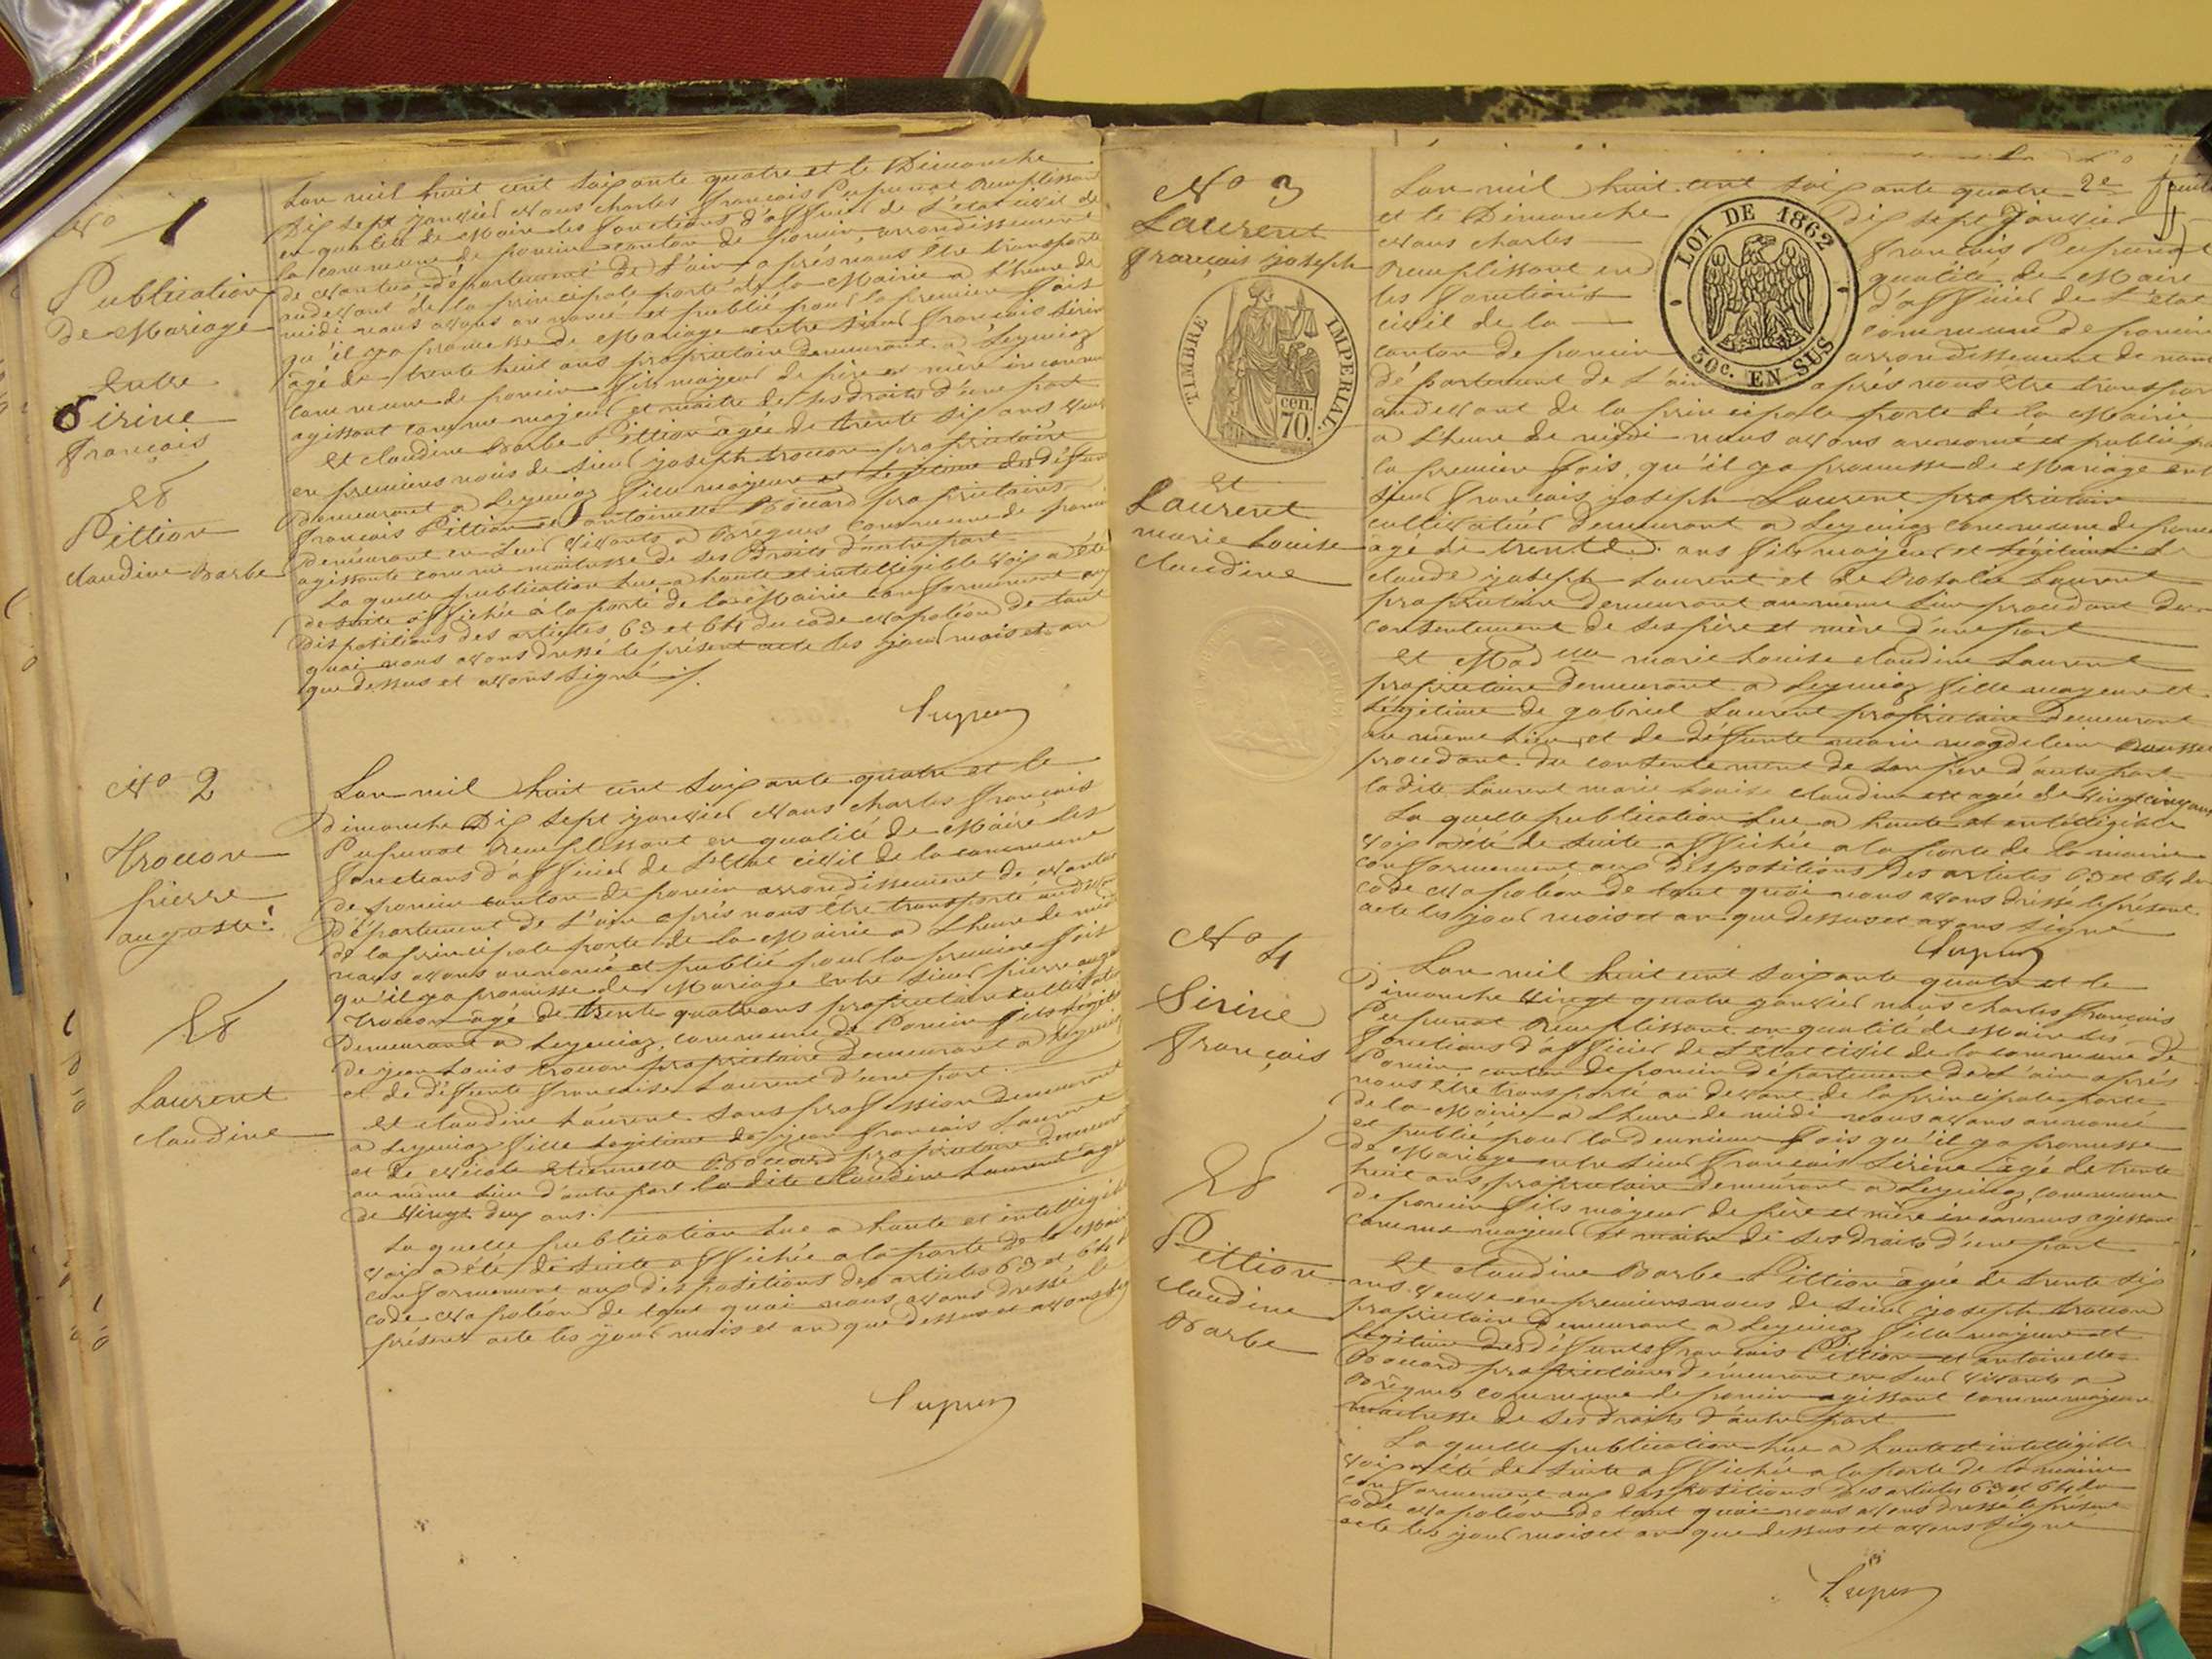 No 1
Publication
de Mariage
Entre
Sirine
françois
Et
Pittion
claudine Barbe
Lan mil huit cent soixante quatre et le Dimanche
Dix sept janvier Nous charles françois Pupunat Remplissant
en qualité de Maire les fonctions d'officier de l'état civil de
la commune de poncin canton de poncin arrondissement
de Nantua département de l'ain après nous être transporté
audevant de la principale porte de la Mairie a l'heure de
midi nous avons annoncé et publié pour la première fois
qu'il y a promesse de Mariage entre sieur françois Sirine
âgé de trente huit ans propriétaire demeurant a Leymiaz
commune de poncin fils majeur de père et mère inconnus
agissant comme majeur et maitre de ses droits d'une part
Et claudine Barbe Pittion agée de trente six ans veuve
en premiers nous de sieur joseph trouon propriétaire
demeurant a Leymiaz fille majeure et légitime des défunts
françois Pittion et antoinette Bouard propriétaires
demeurant en leur vivants a Brégnes commune de poncin
agissante comme maitresse de ses Droits d'autre part
La quelle publication lue a haute et intelligible voix a été
de suite affichée à la porte de la Mairie conformément aux
dispositions des articles 63 et 64 du code Napoléon de tout
quoi nous avons dressé le présent acte les jour mois et an
que dessus et avons signé
No 2
Trouon
pierre
auguste
Et
Laurent
claudine
Lan mil huit cent soixante quatre et le
Dimanche Dix sept janvier Nous charles françois
Pupunat Remplissant en qualité de Maire les
fonctions d'officier de l'Etat civil de la commune
de poncin canton de poncin arrondissement de Nantua
département de l'ain après nous être transporté audevant
de la principale porte de la Mairie a l'heure de midi
nous avons annoncé et publié pour la première fois
qu'il y a promesse de Mariage entre sieur pierre auguste
trouon âgé de trente quatre ans propriétaire cultivateur
demeurant a Leymiaz commune de Poncin fils légitime
de jean Louis trouon propriétaire demeurant a Leymiaz
et de défunte françoise Laurent d'une part
Et claudine Laurent sans profession demeurant
a Leymiaz fille légitime de jean françois Laurent
et de Nicole Etiennette Bouard propriétaire demeurant
au même lieu d'autre part la dite claudine Laurent âgée
de vingt deux ans.
La quelle publication lue a haute et intelligible
voix a été de suite affichée a la porte de la Mairie
conformement aux dispositions des articles 63 et 64 du
code Napoléon de tout quoi nous avons dressé le
présent acte les jour mois et an que dessus et avons signé
No 3
Laurent
françois joseph
TIMBRE IMPERIAL
70 cen.
Et
Laurent
marie Louise
claudine
LOI DE 1862
50c. EN SUS
Lan mil huit cent soixante quatre 2e feuillet
et le Dimanche Dix sept Janvier
Nous charles françois Pupunat
Remplissant en qualité de Maire
les fonctions d'officier de l'état
civil de la commune de poncin
canton de poncin arrondissement de nantua
département de l'ain après nous être transporté
audevant de la principale porte de la Mairie
a l'heure de midi nous avons annoncé et publié pour
la premier fois, qu'il y a promesse de Mariage entre
sieur françois joseph Laurent propriétaire
cultivateur demeurant a Leymiaz commune de poncin
agé de trente ans fils majeur et légitime de
claude joseph Laurent et de Rosalie Laurent
propriétaire demeurant au même lieu procédant du
consentement de ses père et mère d'une part
Et Mad elle marie Louise claudine Laurent
propriétaire demeurant a Leymiaz fille majeure et
légitime de gabriel Laurent propriétaire Demeurant
au même lieu et de défunte marie magdeleine
procédant du consentement de son père d'autre part
la dite Laurent marie Louise claudine est agée de vingt cinq ans
La quelle publication lue a haute et intelligible
voix a été de suite affichée a la porte de la mairie
conformement aux dispositions des articles 63 et 64 du
code Napoléon de tout quoi nous avons dressé le présent
acte les jour mois et an que dessus et avons signé
No 4
Sirine
françois
Et
Pittion
claudine
Barbe
Lan mil huit cent soixante quatre et le
Dimanche vingt quatre janvier nous charles françois
Pupunat Remplissant en qualité de Maire les
fonctions d'officier de l'état civil de la commune de
Poncin canton de poncin département de l'ain après
nous être transporté au devant de la principale porte
de la Mairie a l'heure de midi nous avons annoncé
et publié pour la deuxieme fois qu'il y a promesse
de Mariage entre sieur françois Sirine âgé de trente
huit ans propriétaire demeurant a Leymiaz commune
de poncin fils majeur de père et mère inconnus agissant
comme majeur et maitre de ses droits d'une part
Et claudine Barbe Pittion âgée de trente six
ans veuve en premiers nous de sieur joseph trouon
propriétaire demeurant a Leymiaz fille majeure et
légitime des défunts françois Pittion et antoinette
Bouard propriétaires demeurant en leur vivants a
Brégnes commune de poncin agissant comme majeure
maitresse de ses droits d'autre part
La quelle publication lue a haute et intelligible
voix a été de suite affichée a la porte de la mairie
conformement aux dispositions des articles 63 et 64 du
code Napoléon de tout quoi nous avons dressé le présent
acte les jour mois et an que dessus et avons signé